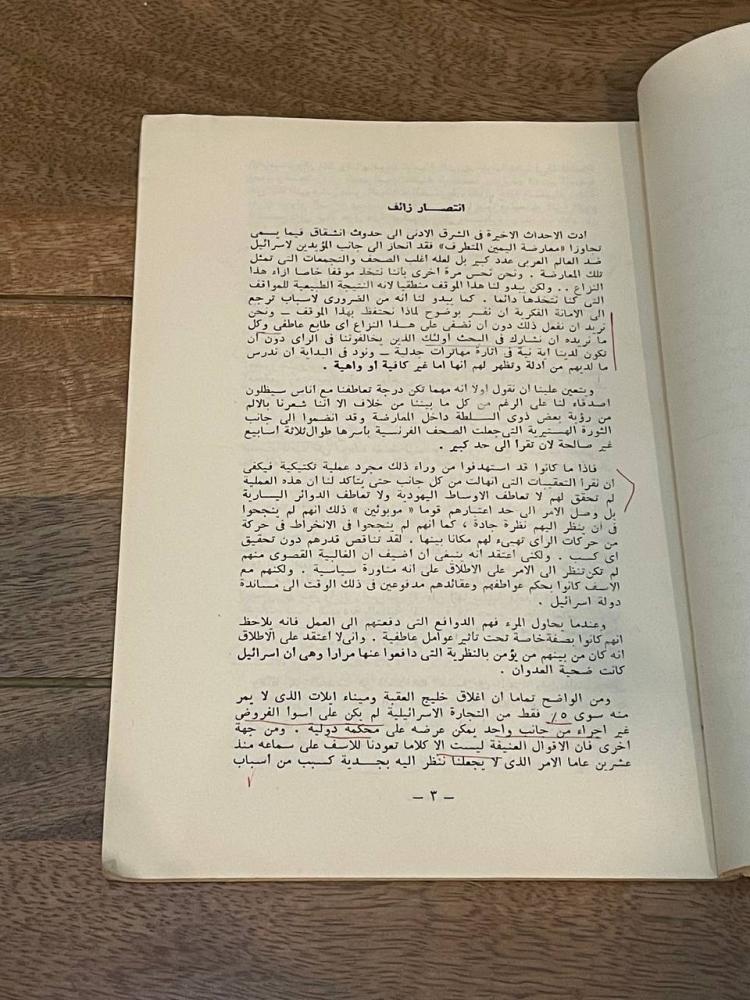 انتصــار زائف
ادت الاحداث الاخيرة فى الشرق الادنى الى حدوث انشقاق فيما يسمى
تجاوزا «معارضة اليمين المتطرف» فقد انحاز الى جانب المؤيدين لاسرائيل
ضد العالم العربى عدد كبير بل لعله اغلب الصحف والتجمعات التى تمثل
تلك المعارضة . ونحن نحس مرة اخرى باننا نتخذ موقفا خاصا ازاء هذا
النزاع .. ولكن يبدو لنا هذا الموقف منطقيا لانه النتيجة الطبيعية للمواقف
التى كنا نتخذها دائما . كما يبدو لنا انه من الضرورى لاسباب ترجع
الى الامانة الفكرية ان نفسر بوضوح لماذا نحتفظ بهذا الموقف ــ ونحن
نريد ان نفعل ذلك دون ان نضفى على هــذا النزاع اى طابع عاطفى وكل
ما نريده ان نشارك فى البحث اولئك الذين يخالفوننا فى الراى دون ان
تكون لدينا اية نية فى اثارة مهاترات جدلية ــ ونود فى البداية ان ندرس
ما لديهم من ادلة ونظهر لهم انها اما غير كافية او واهية .
ويتعين علينا ان نقول اولا انه مهما تكن درجة تعاطفنا مع اناس سيظلون
اصدقاء لنا على الرغم من كل ما بيننا من خلاف الا اننا شعرنا بالالم
من رؤية بعض ذوى الســلطة داخل المعارضة وقد انضموا الى جانب
الثورة الهستيرية التى جعلت الصحف الفرنسية باسرها طوال ثلاثة اسابيع
غير صالحة لان تقرا الى حد كبير .
فاذا ما كانوا قد استهدفوا من وراء ذلك مجرد عملية تكتيكية فيكفى
ان نقرأ التعقيبات التى انهالت من كل جانب حتى يتأكد لنا ان هذه العملية
لم تحقق لهم لا تعاطف الاوساط اليهودية ولا تعاطف الدوائر اليسارية
بل وصل الامر الى حد اعتبارهم قوما « موبوئين » ذلك انهم لم ينجحوا
فى ان ينظر اليهم نظرة جادة ، كما انهم لم ينجحوا فى الانخراط فى حركة
من حركات الراى تهيىء لهم مكانا بينها . لقد تناقص قدرهم دون تحقيق
اى كسب . ولكنى اعتقد انه ينبغى ان اضيف ان الغالبية القصوى منهم
لم تكن تنظر الى الامر على الاطلاق على انه مناورة سياسية . ولكنهم مع
الاسف كانوا بحكم عواطفهم وعقائدهم مدفوعين فى ذلك الوقت الى مساندة
دولة اسرائيل .
وعندما يحاول المرء فهم الدوافع التى دفعتهم الى العمل فانه يلاحظ
انهم كانوا بصفة خاصة تحت تاثير عوامل عاطفية . وانى لا اعتقد على الاطلاق
انه كان من بينهم من يؤمن بالنظرية التى دافعوا عنها مرارا وهى ان اسرائيل
كانت ضحية العدوان .
ومن الواضح تماما ان اغلاق خليج العقبة وميناء ايلات الذى لا يمر
منه سوى ٥٪ فقط من التجارة الاسرائيلية لم يكن على اسوا الفروض
غير اجراء من جانب واحد يمكن عرضه على محكمة دولية . ومن جهة
اخرى فان الاقوال العنيفة ليست الا كلاما تعودنا للاسف على سماعه منذ
عشرين عاما الامر الذى لا يجعلنا ننظر اليه بجــدية كسبب من اسباب
ــ ٣ ــ